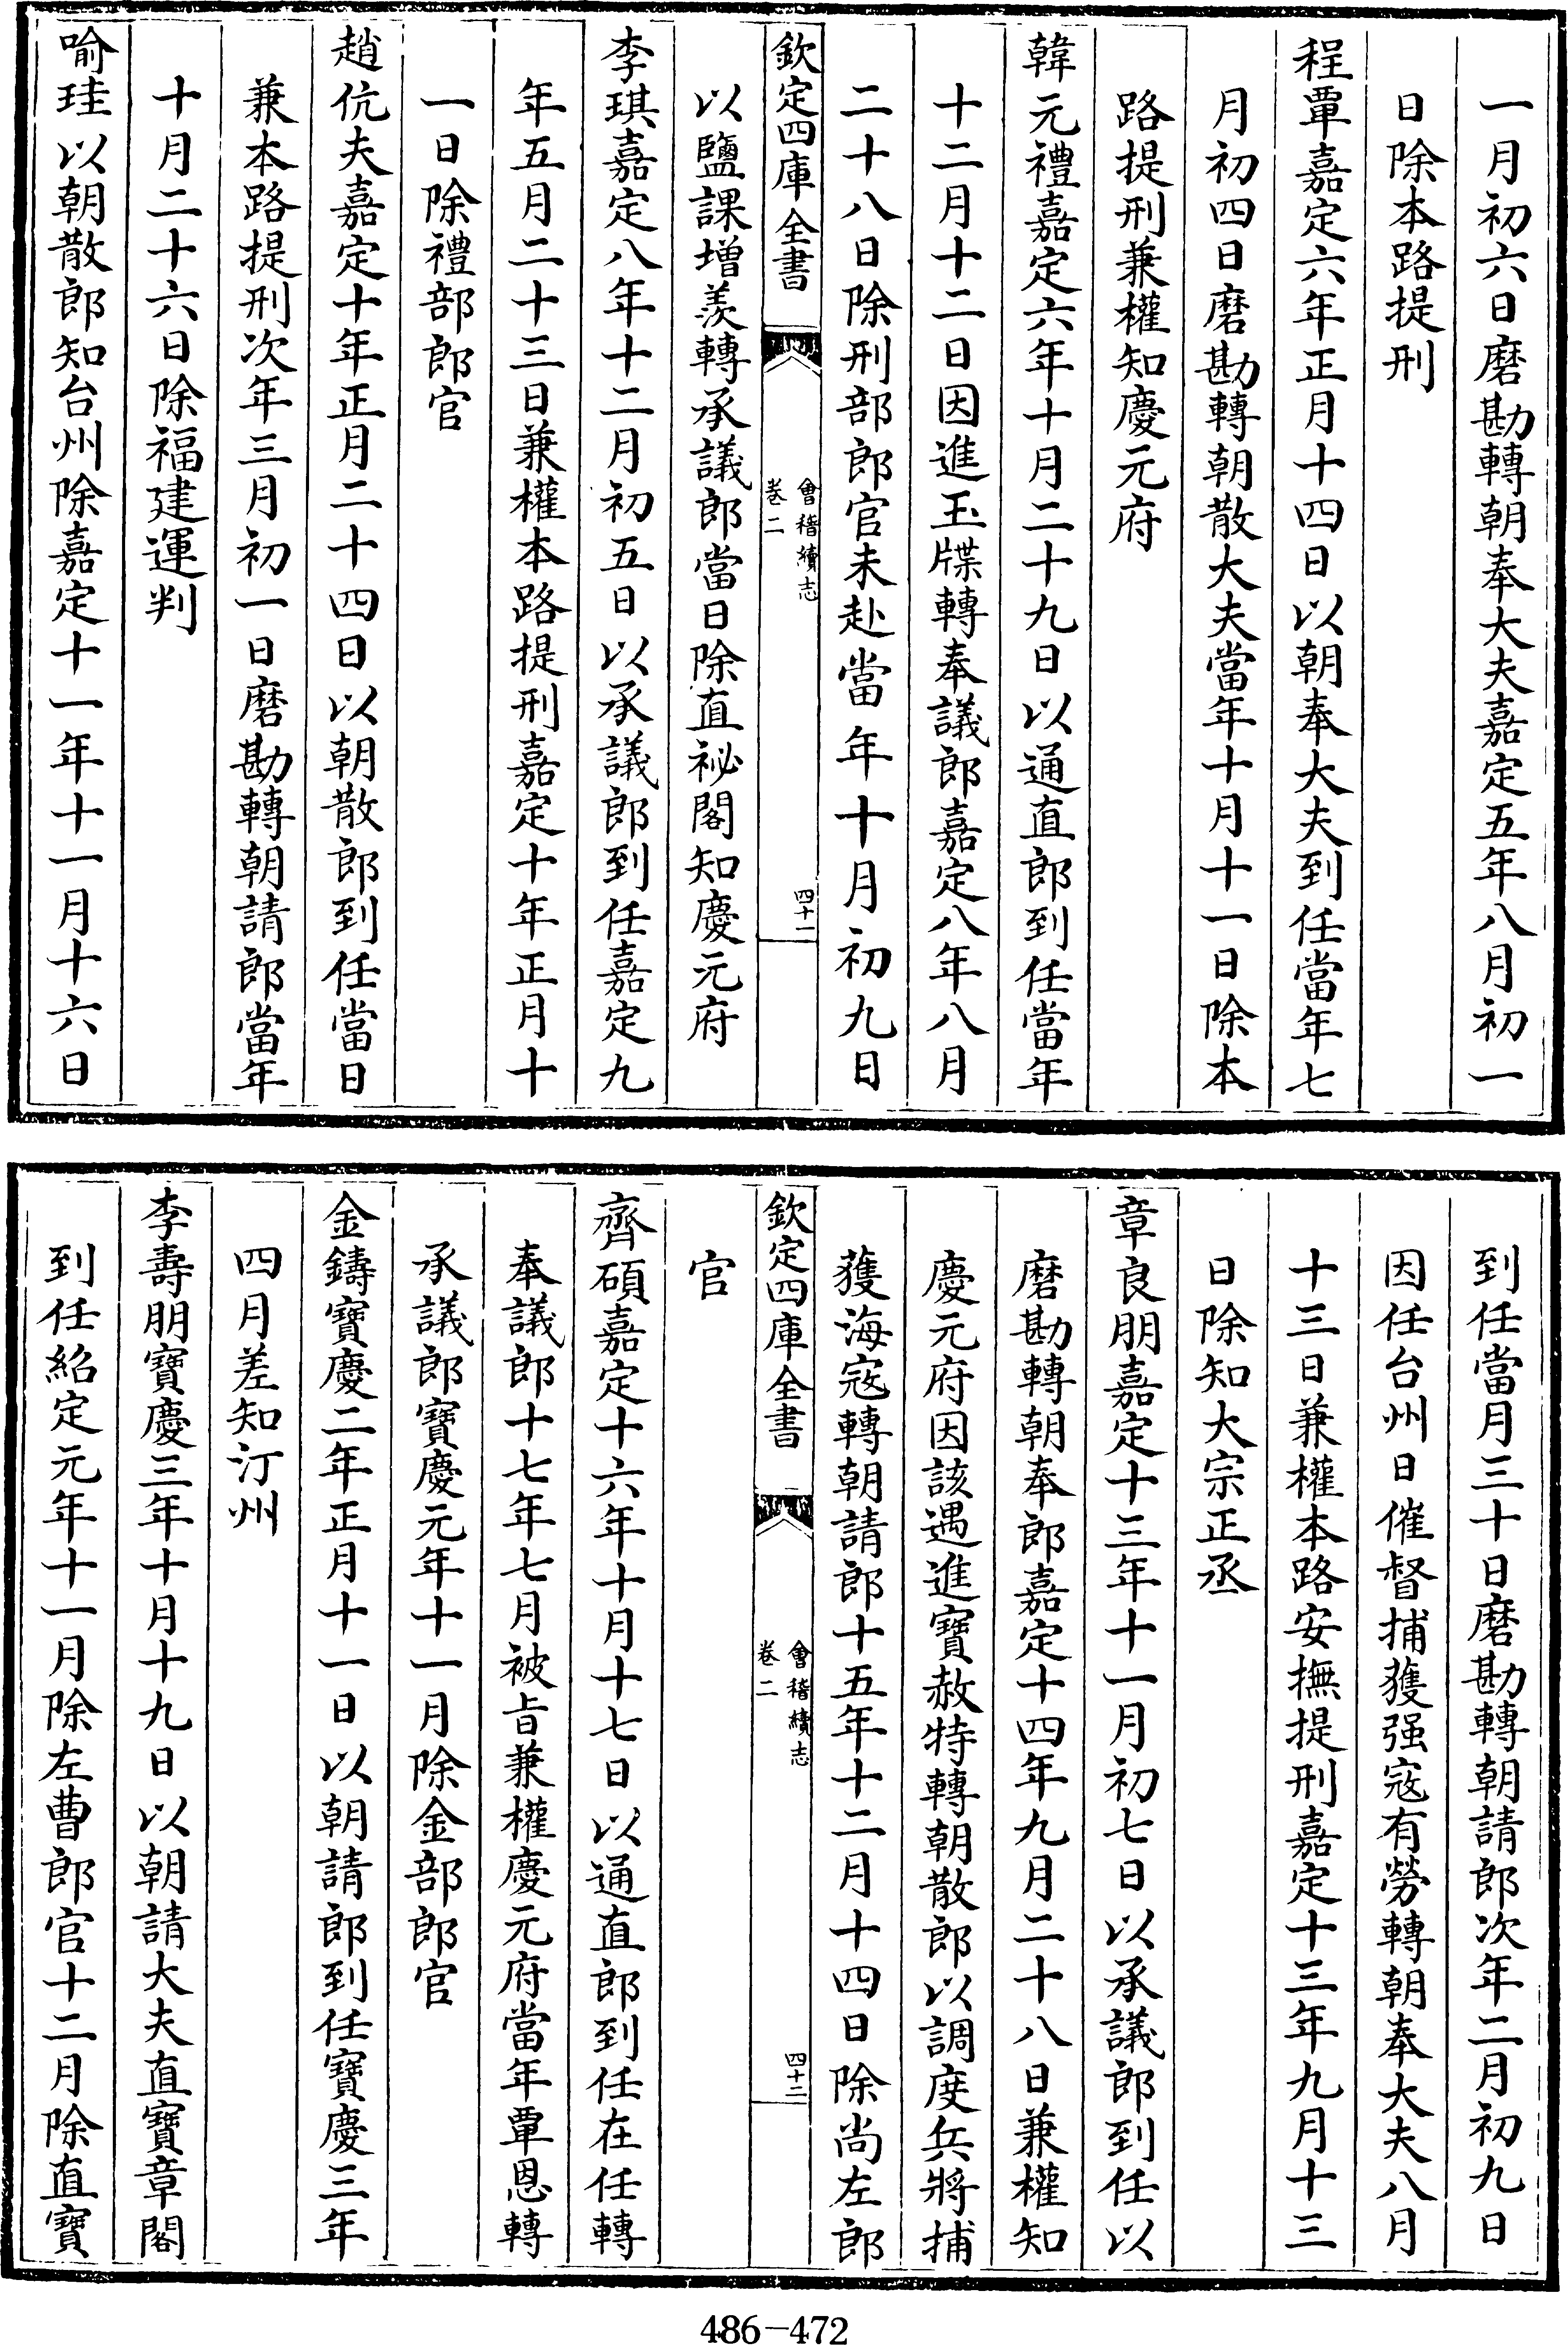 一月初六日磨勘轉朝奉大夫嘉定五年八月初一
日除本路提刑
程覃嘉定六年正月十四日以朝奉大夫到任當年七
月初四日磨勘轉朝散大夫當年十月十一日除本
路提刑兼權知慶元府
韓元禮嘉定六年十月二十九日以通直郎到任當年
十二月十二日因進玉牒轉奉議郎嘉定八年八月
二十八日除刑部郎官未赴當年十月初九日
欽定四庫全書
會稽續志
卷二
四十一
以鹽課增羨轉承議郎當日除直祕閣知慶元府
李琪嘉定八年十二月初五日以承議郎到任嘉定九
年五月二十三日兼權本路提刑嘉定十年正月十
一日除禮部郎官
趙伉夫嘉定十年正月二十四日以朝散郎到任當日
兼本路提刑次年三月初一日磨勘轉朝請郎當年
十月二十六日除福建運判
喻珪以朝散郎知台州除嘉定十一年十一月十六日
到任當月三十日磨勘轉朝請郎次年二月初九日
因任台州日催督捕獲强寇有勞轉朝奉大夫八月
十三日兼權本路安撫提刑嘉定十三年九月十三
日除知大宗正丞
章良朋嘉定十三年十一月初七日以承議郎到任以
磨勘轉朝奉郎嘉定十四年九月二十八日兼權知
慶元府因該遇進寶赦特轉朝散郎以調度兵將捕
獲海寇轉朝請郎十五年十二月十四日除尚左郎
欽定四庫全書
會稽續志
卷二
四十二
官
齊碩嘉定十六年十月十七日以通直郎到任在任轉
奉議郎十七年七月被旨兼權慶元府當年覃恩轉
承議郎寶慶元年十一月除金部郎官
金鑄寶慶二年正月十一日以朝請郎到任寶慶三年
四月差知汀州
李壽朋寶慶三年十月十九日以朝請大夫直寶章閣
到任紹定元年十一月除左曹郎官十二月除直寶
486-472